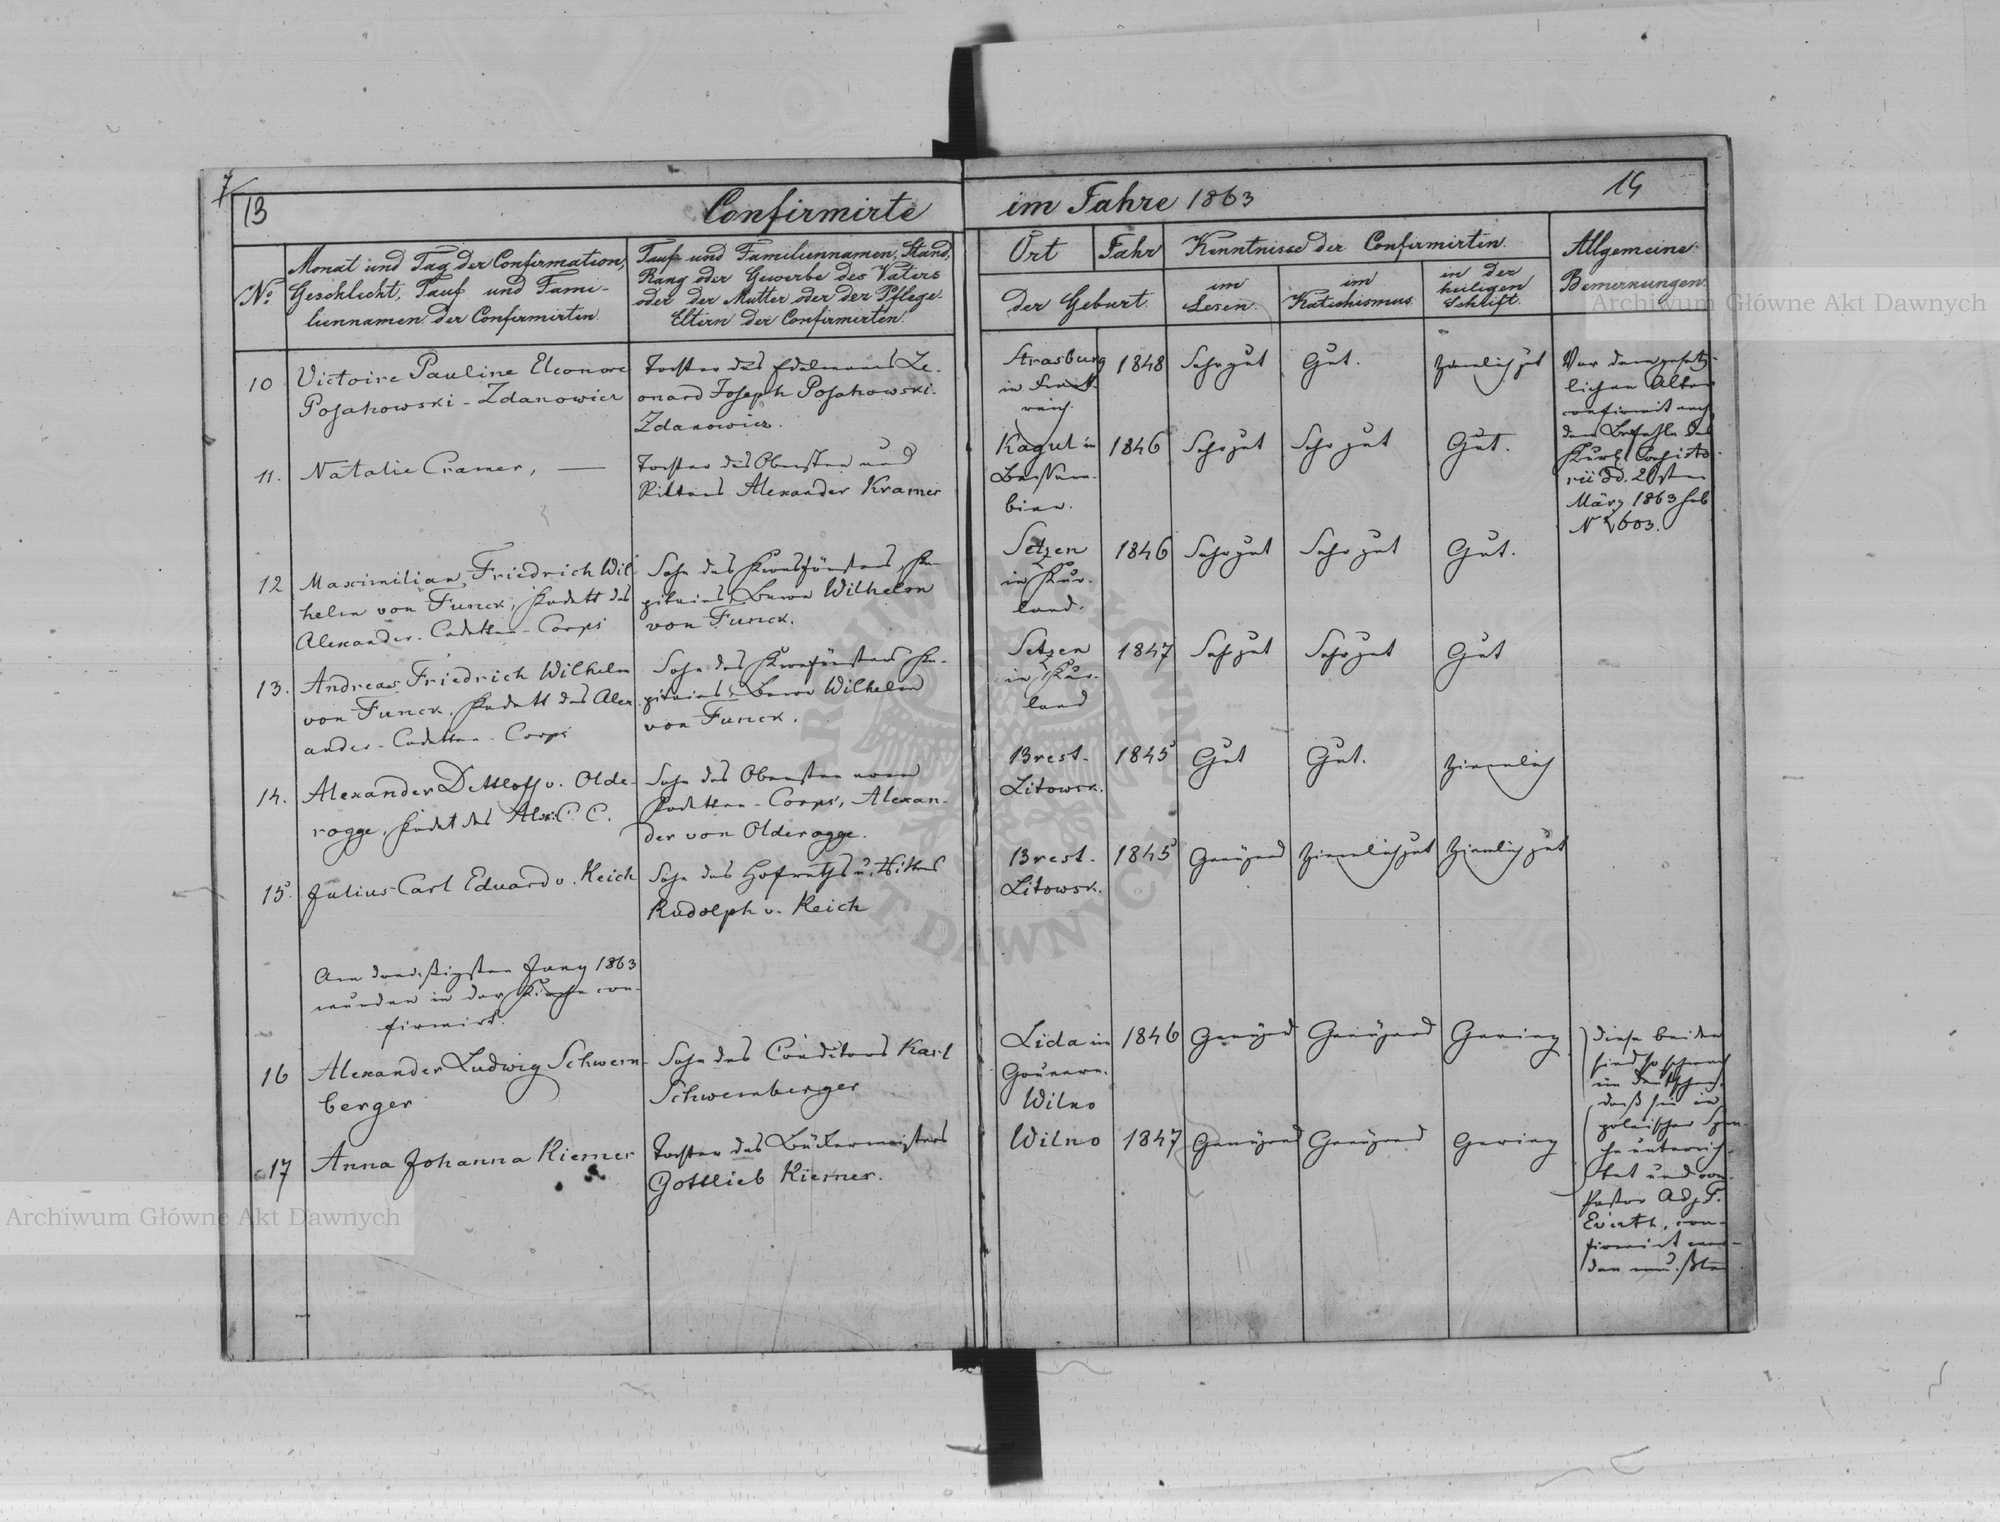 7
13
Confirmirte
im Jahre 1863
14
No
Monat und Tag der Confirmation,
Geschlecht, Tauf und Fami-
liennamen der Confirmirten.
Tauf und Familiennamen, Stand,
Rang oder Gewerbe des Vaters
oder der Mutter oder der Pflege-
Eltern der Confirmirten.
Ort
Jahr
der Geburt.
Kenntnisse der Confirmirten.
im
Lesen.
im
Katechismus.
in der
heiligen
Schrift.
Allgemeine
Bemerkungen.
10
Victoire Pauline Eleonore
Posahowski-Zdanowicz
Tochter des Edelmanns Le-
onard Joseph Posahowski-
Zdanowicz.
Strasburg
in Frank-
reich.
1848
Sehr gut
Gut.
Ziemlich gut
Vor dem gesetz-
lichen Alter
confirmirt nach
dem Befehle des
Kurl. Consisto-
rii d.d. 20sten
März 1863 sub
No 603.
11.
Natalie Cramer, —
Tochter des Obersten und
Ritters Alexander Kramer
Kagul in
Bessara-
bien.
1846
Sehr gut
Sehr gut
Gut.
12
Maximilian Friedrich Wil-
helm von Funck, Kadett des
Alexander-Cadetten-Corps
Sohn des Kronsförsters, Ka-
pitains, Baron Wilhelm
von Funck.
Setzen
in Kur-
land.
1846
Sehr gut
Sehr gut
Gut.
13.
Andreas Friedrich Wilhelm
von Funck, Kadett des Alex-
ander-Cadetten-Corps
Sohn des Kronsförsters Ka-
pitains, Baron Wilhelm
von Funck.
Setzen
in Kur-
land
1847
Sehr gut
Sehr gut
Gut
14.
Alexander Dettloff v. Olde-
rogge, Kadet des Alex. C. C.
Sohn des Obersten vom
Kadetten-Corps, Alexan-
der von Olderogge.
Brest-
Litowsk.
1845
Gut
Gut.
Ziemlich
15.
Julius Carl Eduard v. Reich
Sohn des Hofraths u. Ritters
Rudolph v. Reich
Brest-
Litowsk.
1845
Genügend
Ziemlich gut
Ziemlich gut
Am dreißigsten Juny 1863
wurden in der Kirche con-
firmirt.
16
Alexander Ludwig Schwem-
berger
Sohn des Conditors Karl
Schwemberger
Lida in
Gouvern.
Wilno
1846
Genügend
Genügend
Gering
Diese beiden
sind so schwach
im Deutschen,
daß sie in
polnischer Spra-
che unterrich-
tet und vom
Pastor Adj. F.
Everth, con-
firmirt wer-
den mußten
17
Anna Johanna Kiemer
Tochter des Bäckermeisters
Gottlieb Kiemer.
Wilno
1847
Genügend
Genügend
Gering
Archiwum Główne Akt Dawnych
Archiwum Główne Akt Dawnych